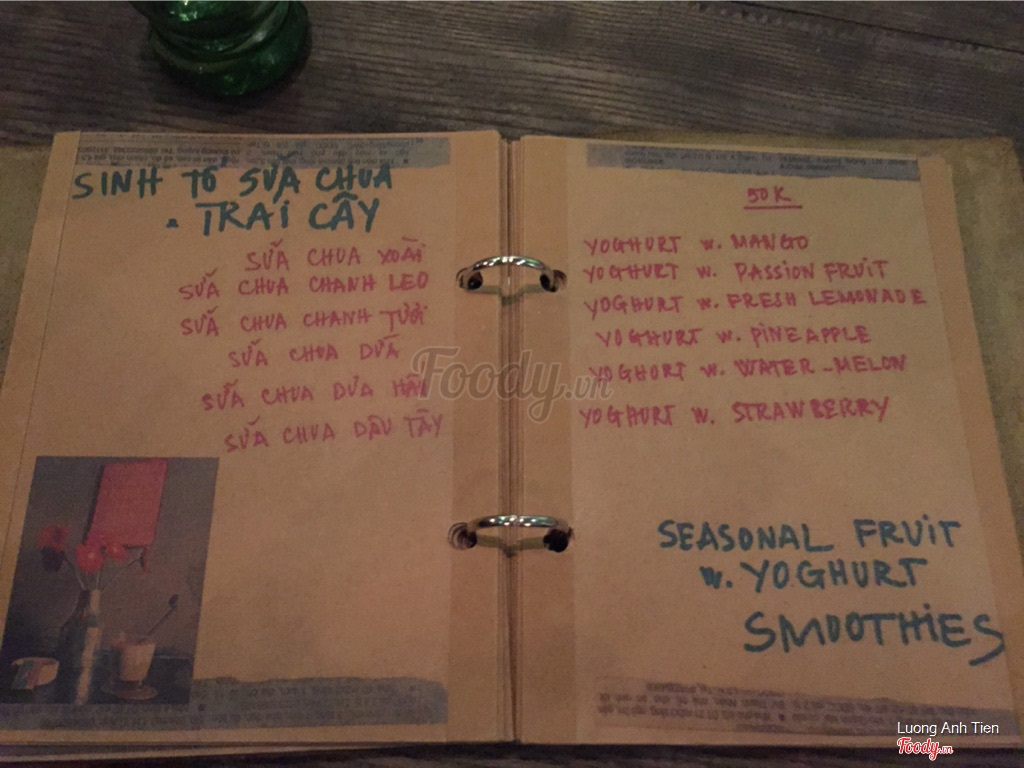 SINH TỐ SỮA CHUA
& TRÁI CÂY
SỮA CHUA XOÀI
SỮA CHUA CHANH LEO
SỮA CHUA CHANH TƯƠI
SỮA CHUA DỨA
SỮA CHUA DƯA HẤU
SỮA CHUA DÂU TÂY
50K
YOGHURT w. MANGO
YOGHURT w. PASSION FRUIT
YOGHURT w. FRESH LEMONADE
YOGHURT w. PINEAPPLE
YOGHURT w. WATER-MELON
YOGHURT w. STRAWBERRY
SEASONAL FRUIT
w. YOGHURT
SMOOTHIES
Foody.vn
Luong Anh Tien
Foody.vn